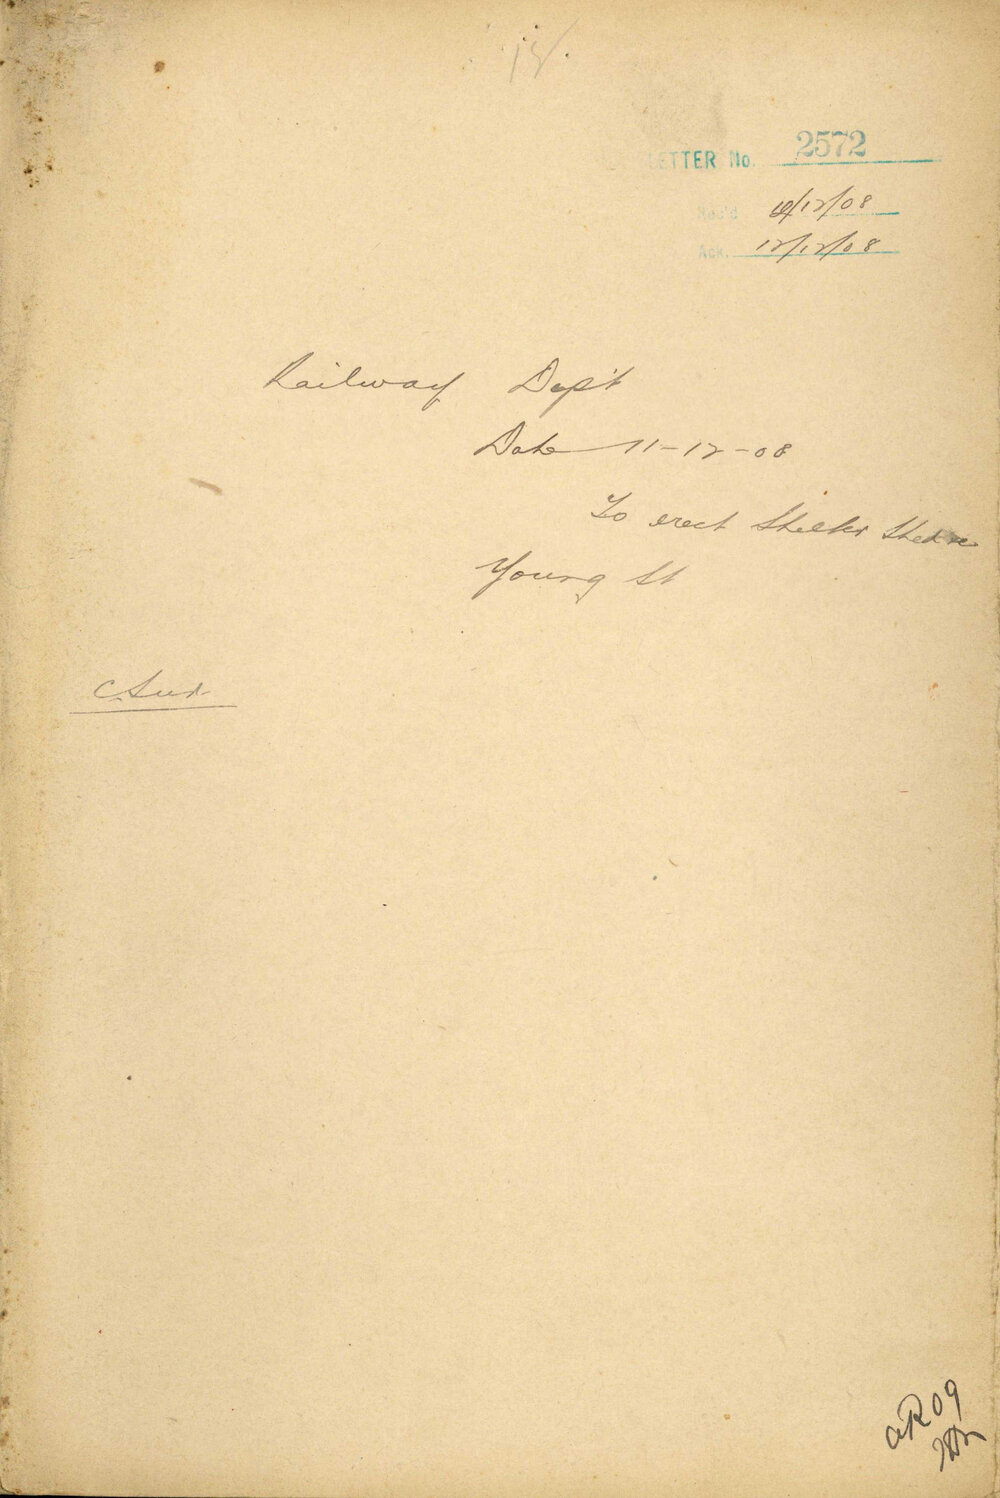 LETTER No. 2572
Rec'd 12/08
Ack. 12/12/08
Railway Dep't
Date 11-12-08
To erect Shelter Shed
Young St
C. Sur
09